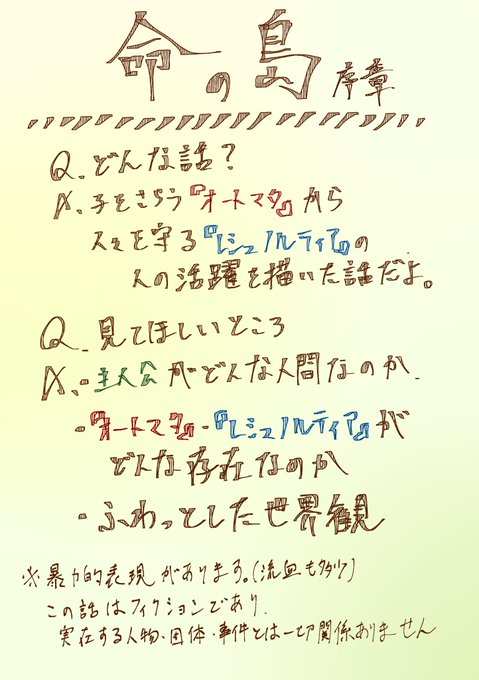 命の島 序章
Q. どんな話?
A. 子をさらう『オートマタ』から
人々を守る『レジュノルティア』の
人の活躍を描いた話だよ。
Q. 見てほしいところ
A. ・主人公がどんな人間なのか.
・『オートマタ』・『レジュノルティア』が
どんな存在なのか
・ふわっとした世界観
※暴力的表現があります。(流血も多少)
この話はフィクションであり.
実在する人物・団体・事件とは一切関係ありません